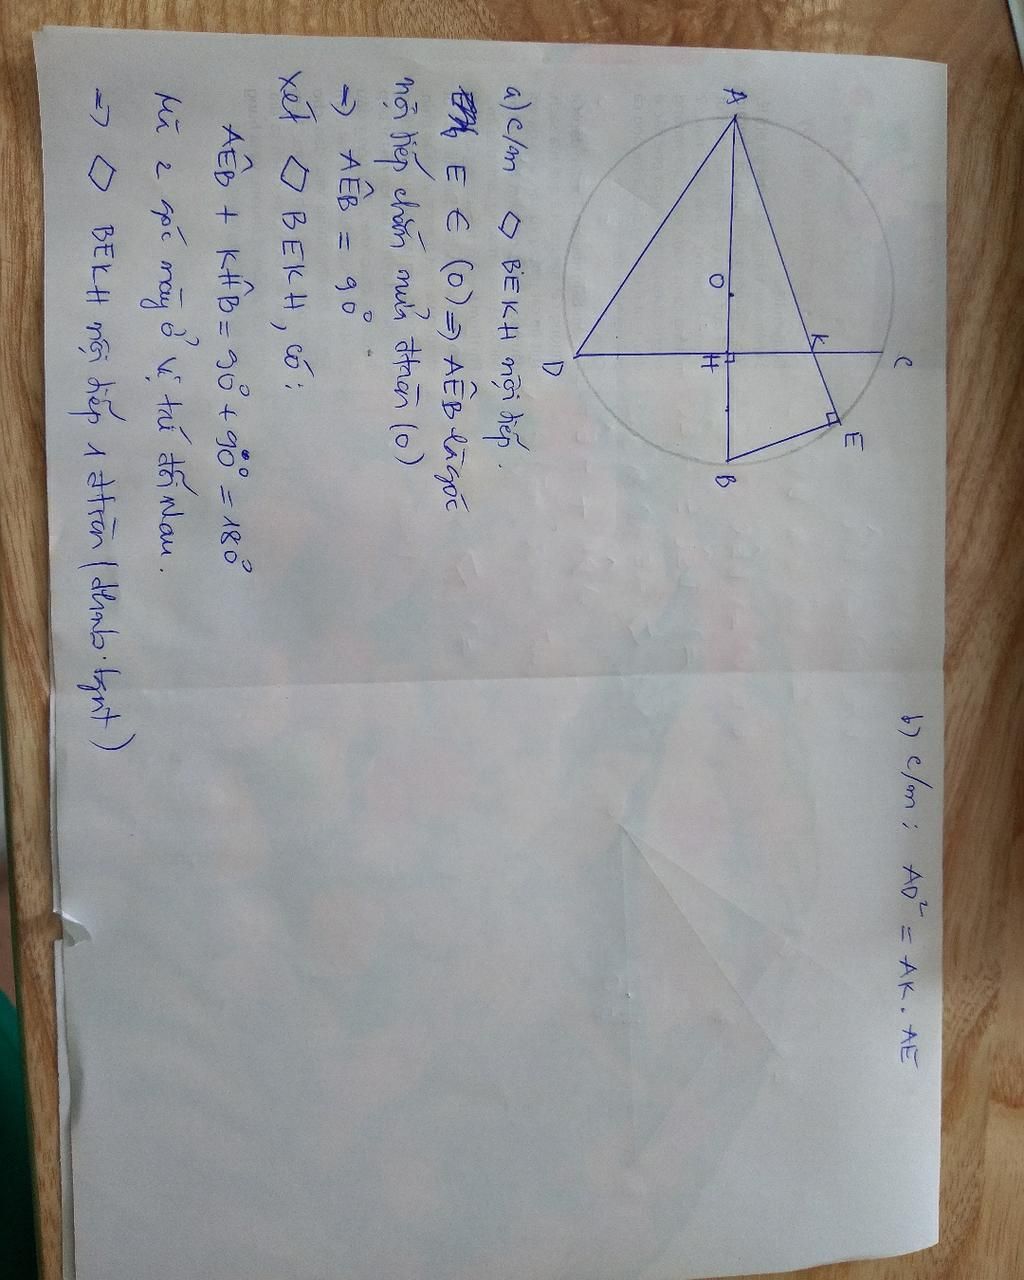 A
O
H
B
D
K
C
E
a) c/m ◇ BEKH nội tiếp.
E ∈ (O) => AÊB là góc
nội tiếp chắn nửa đtròn (O)
=> AÊB = 90°
xét ◇ BEKH, có:
AÊB + KĤB = 90° + 90° = 180°
Mà 2 góc này ở vị trí đối nhau.
=> ◇ BEKH nội tiếp 1 đtròn (dhnb.tgnt)
b) c/m: AD² = AK. AE